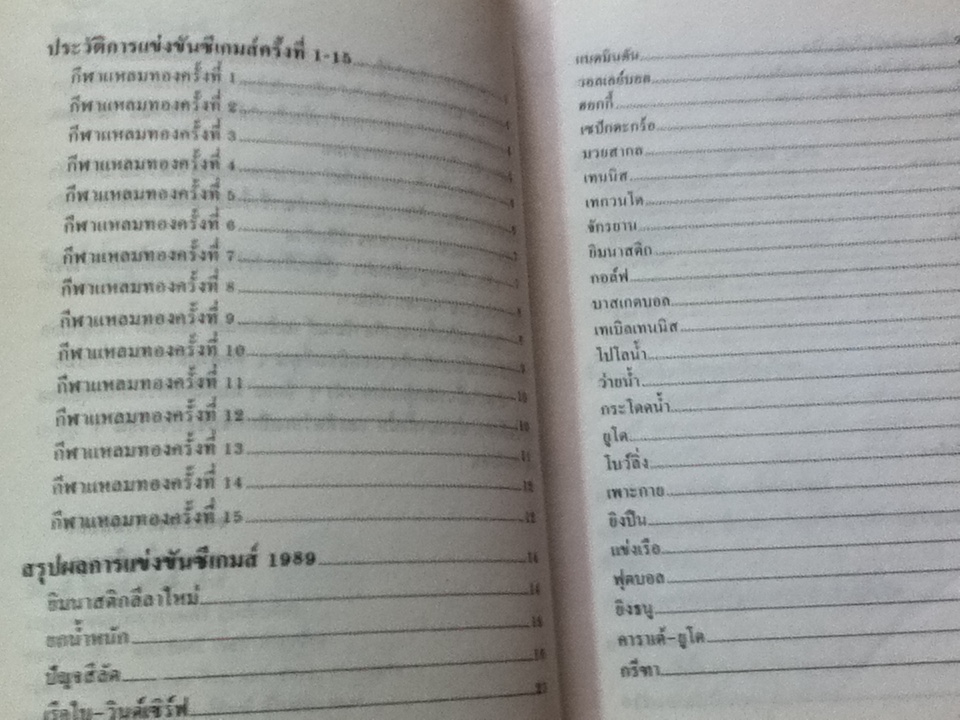 ประวัติการแข่งขันซีเกมส์ครั้งที่ 1-15
กีฬาแหลมทองครั้งที่ 1
กีฬาแหลมทองครั้งที่ 2
กีฬาแหลมทองครั้งที่ 3
กีฬาแหลมทองครั้งที่ 4
กีฬาแหลมทองครั้งที่ 5
กีฬาแหลมทองครั้งที่ 6
กีฬาแหลมทองครั้งที่ 7
กีฬาแหลมทองครั้งที่ 8
กีฬาแหลมทองครั้งที่ 9
กีฬาแหลมทองครั้งที่ 10
กีฬาแหลมทองครั้งที่ 11
กีฬาแหลมทองครั้งที่ 12
กีฬาแหลมทองครั้งที่ 13
กีฬาแหลมทองครั้งที่ 14
กีฬาแหลมทองครั้งที่ 15
สรุปผลการแข่งขันซีเกมส์ 1989
ยิมนาสติกลีลาใหม่
ยกน้ำหนัก
ปัญจสีลัต
เรือใบ-วินด์เซิร์ฟ
แบดมินตัน
วอลเลย์บอล
ฮอกกี้
เซปักตะกร้อ
มวยสากล
เทนนิส
เทควันโด
จักรยาน
ยิมนาสติก
กอล์ฟ
บาสเกตบอล
เทเบิลเทนนิส
โปโลน้ำ
ว่ายน้ำ
กระโดดน้ำ
ยูโด
โบว์ลิ่ง
เพาะกาย
ยิงปืน
แข่งเรือ
ฟุตบอล
ยิงธนู
คาราเต้-ยูโด
กรีฑา